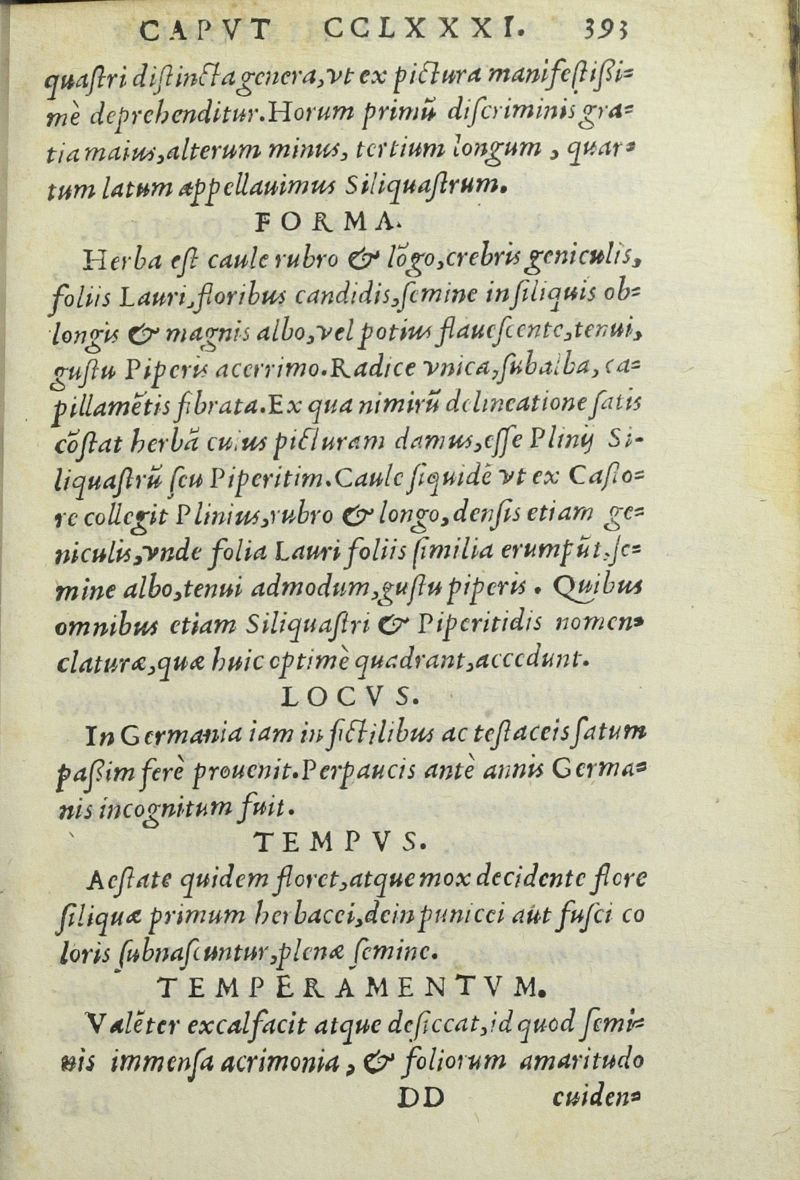 CAPVT CCLXXXI. 393
quaſtri diſtincta genera, vt ex pictura manifeſtißi-
mè deprehenditur. Horum primũ diſcriminis gra-
tia maius, alterum minus, tertium longum, quar-
tum latum appellauimus Siliquaſtrum.
FORMA.
Herba eſt caule rubro & lõgo, crebris geniculis,
foliis Lauri, floribus candidis, ſemine in ſiliquis ob-
longis & magnis albo, vel potius flaueſcente, tenui,
guſtu Piperis acerrimo. Radice vnica, ſubalba, ca-
pillamẽtis fibrata. Ex qua nimirũ delineatione ſatis
cõſtat herbã cuius picturam damus, eſſe Plinij Si-
liquaſtrũ ſeu Piperitim. Caule ſiquidẽ vt ex Caſto-
re collegit Plinius, rubro & longo, denſis etiam ge-
niculis, vnde folia Lauri foliis ſimilia erumpũt, ſe-
mine albo, tenui admodum, guſtu piperis. Quibus
omnibus etiam Siliquaſtri & Piperitidis nomen-
claturæ, quæ huic optimè quadrant, accedunt.
LOCVS.
In Germania iam in fictilibus ac teſtaceis ſatum
paßim ferè prouenit. Perpaucis antè annis Germa-
nis incognitum fuit.
TEMPVS.
Aeſtate quidem floret, atque mox decidente flore
ſiliquæ primum herbacei, dein punicei aut fuſci co
loris ſubnaſcuntur, plenæ ſemine.
TEMPERAMENTVM.
Valẽter excalfacit atque deſiccat, id quod ſemi-
nis immenſa acrimonia, & foliorum amaritudo
DD cuiden-